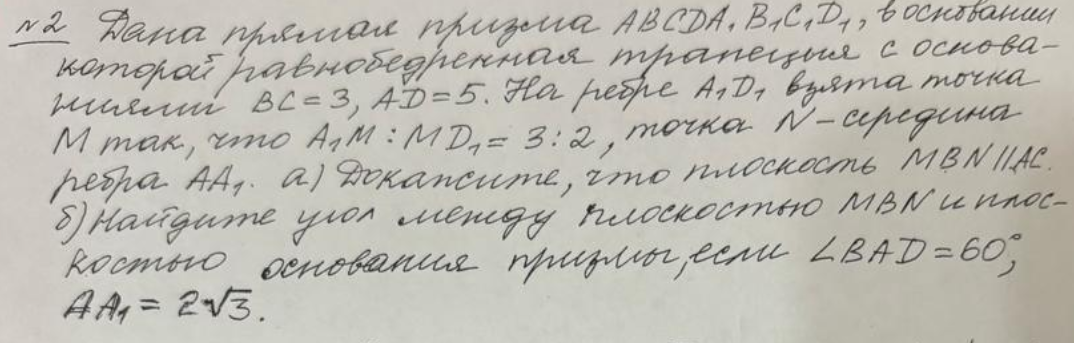 №2 Дана прямая призма ABCDA₁B₁C₁D₁, в основании
которой равнобедренная трапеция с основа-
ниями BC = 3, AD = 5. На ребре A₁D₁ взята точка
M так, что A₁M : MD₁ = 3 : 2, точка N – середина
ребра AA₁. а) Докажите, что плоскость MBN || AC.
б) Найдите угол между плоскостью MBN и плос-
костью основания призмы, если ∠BAD = 60°,
AA₁ = 2√3.